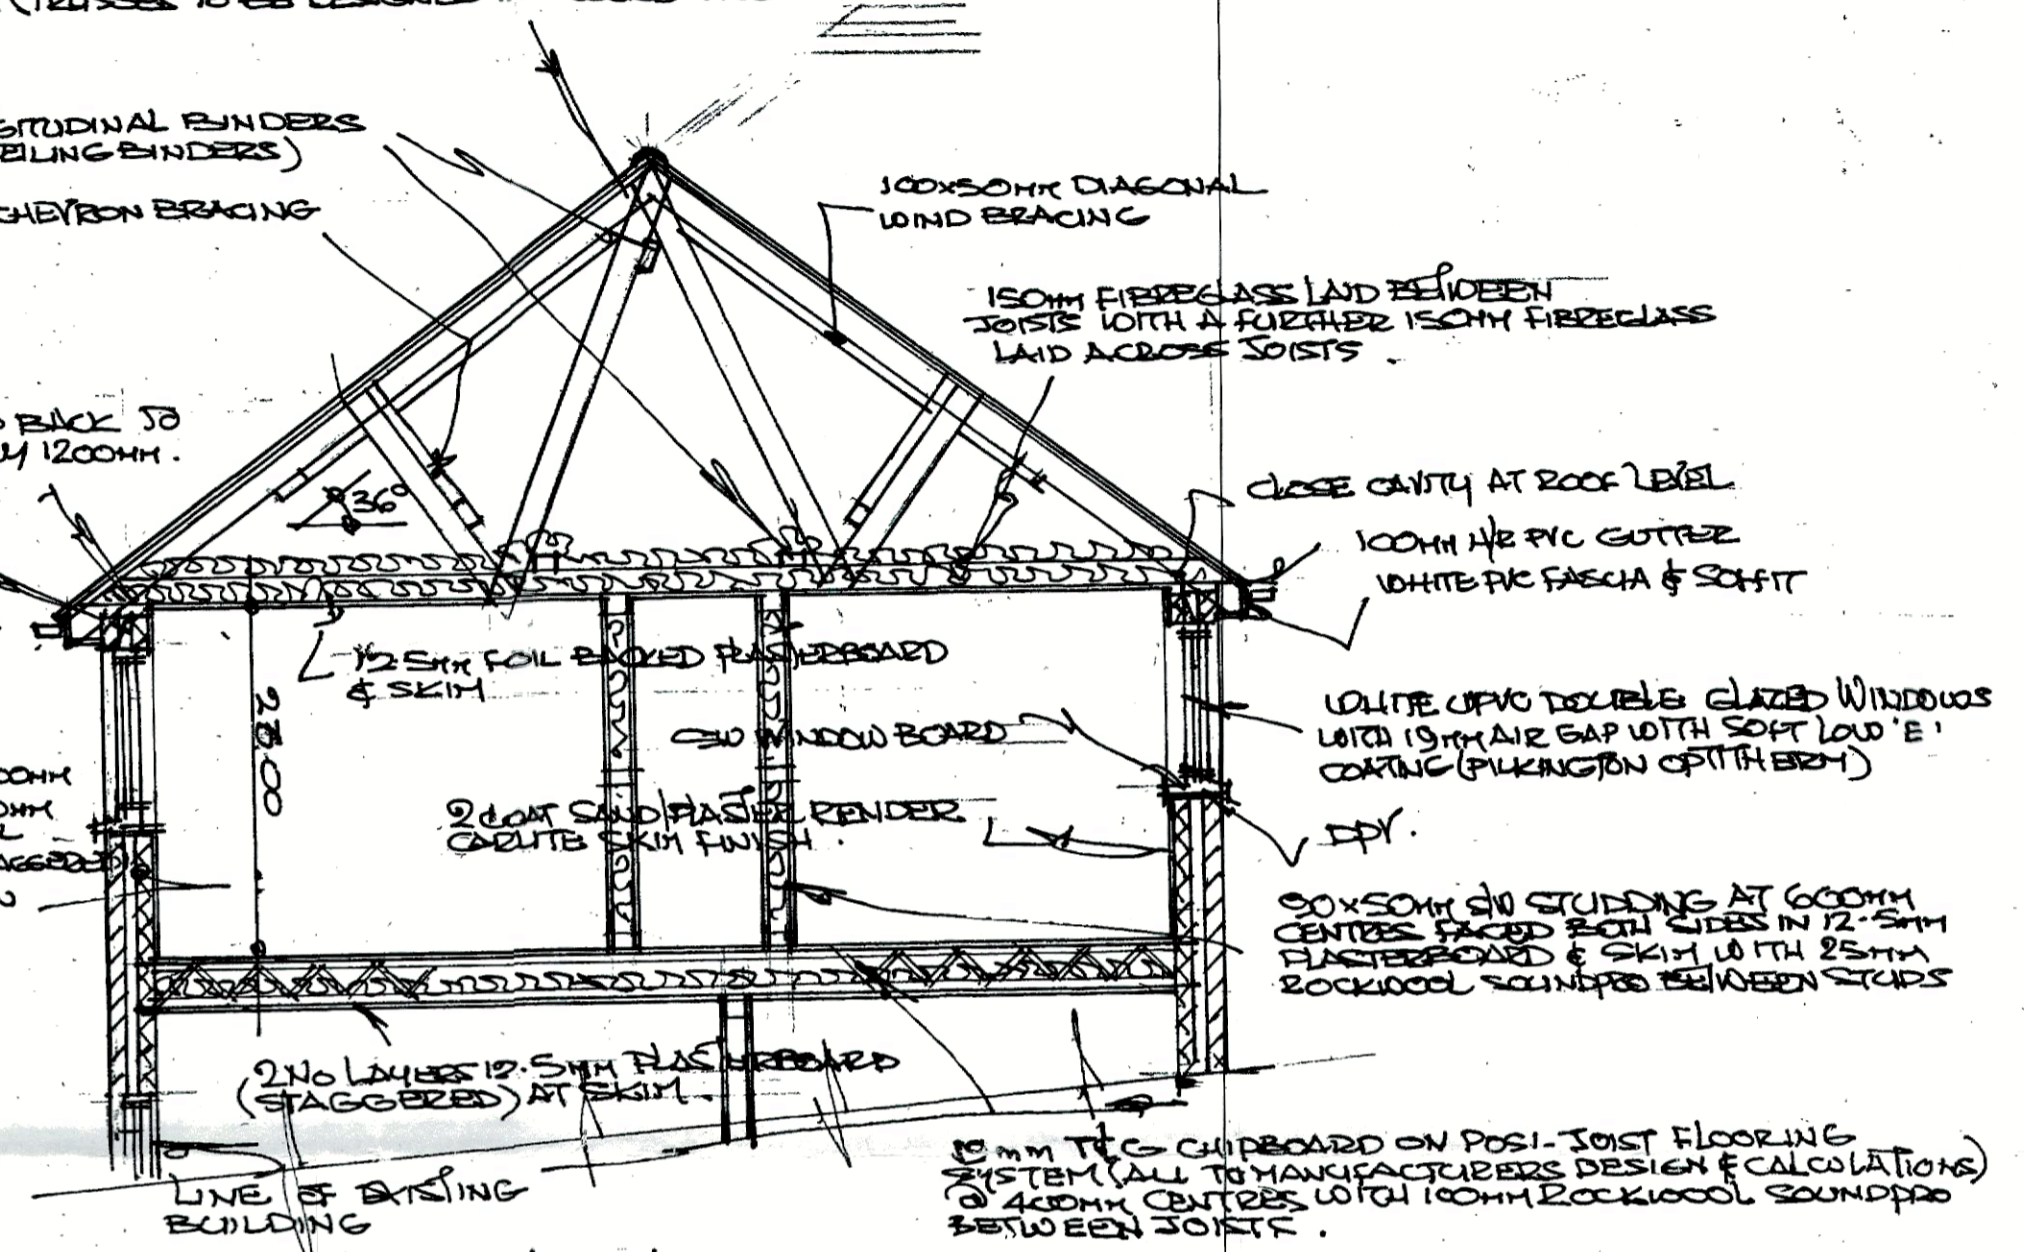 (TRUSSES TO BE DESIGNED
GITUDINAL BINDERS
EILING BINDERS)
CHEVRON BRACING
100x50MM DIAGONAL
WIND BRACING
150MM FIBREGLASS LAID BETWEEN
JOISTS WITH A FURTHER 150MM FIBREGLASS
LAID ACROSS JOISTS.
BACK TO
1200MM.
36°
CLOSE CAVITY AT ROOF LEVEL
100MM H/R PVC GUTTER
WHITE PVC FASCIA & SOFFIT
12.5MM FOIL BACKED PLASTERBOARD
& SKIM
2300
WHITE UPVC DOUBLE GLAZED WINDOWS
WITH 19MM AIR GAP WITH SOFT LOW 'E'
COATING (PILKINGTON OPTITHERM)
SW WINDOW BOARD
00MM
0MM
L
AGGERED
2 COAT SAND/PLASTER RENDER
CARLITE SKIM FINISH.
DPV.
90x50MM S/W STUDDING AT 600MM
CENTRES FACED BOTH SIDES IN 12.5MM
PLASTERBOARD & SKIM WITH 25MM
ROCKWOOL SOUNDPRO BETWEEN STUDS
2NO LAYERS 12.5MM PLASTERBOARD
(STAGGERED) AT SKIM.
LINE OF EXISTING
BUILDING
mm T&G CHIPBOARD ON POSI-JOIST FLOORING
SYSTEM (ALL TO MANUFACTURERS DESIGN & CALCULATIONS)
@ 400MM CENTRES WITH 100MM ROCKWOOL SOUNDPRO
BETWEEN JOISTS.